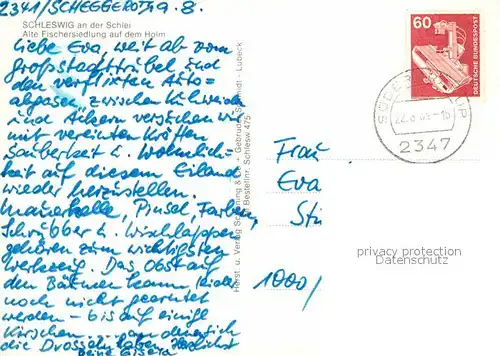 2341/SCHEGGEROTT 9.8.
SCHLESWIG an der Schlei
Alte Fischersiedlung auf dem Holm
Liebe Eva, weit ab vom
Großstadttrubel und
den verflixten Auto=
abgasen zwischen Kuhweiden
und Äckern versuchen wir
mit vereinten Kräften
Sauberkeit u. Wohnlich-
keit auf diesem Eiland
wieder herzustellen.
Maurerkelle, Pinsel, Farben,
Schrubber u. Wischlappen
gehören zum wichtigsten
Werkzeug. Das Obst auf
den Bäumen kann leider
noch nicht geerntet
werden - bis auf einige
Kirschen ... an denen sich
die Drosseln laben. Herzlichst
Deine Gisela
Herst. u. Verlag Schöning & Co - Gebrüder Schmidt - Lübeck
Bestellnr. Schlesw 475
60
DEUTSCHE BUNDESPOST
2347
Frau
Eva
1000/
privacy protection
Datenschutz